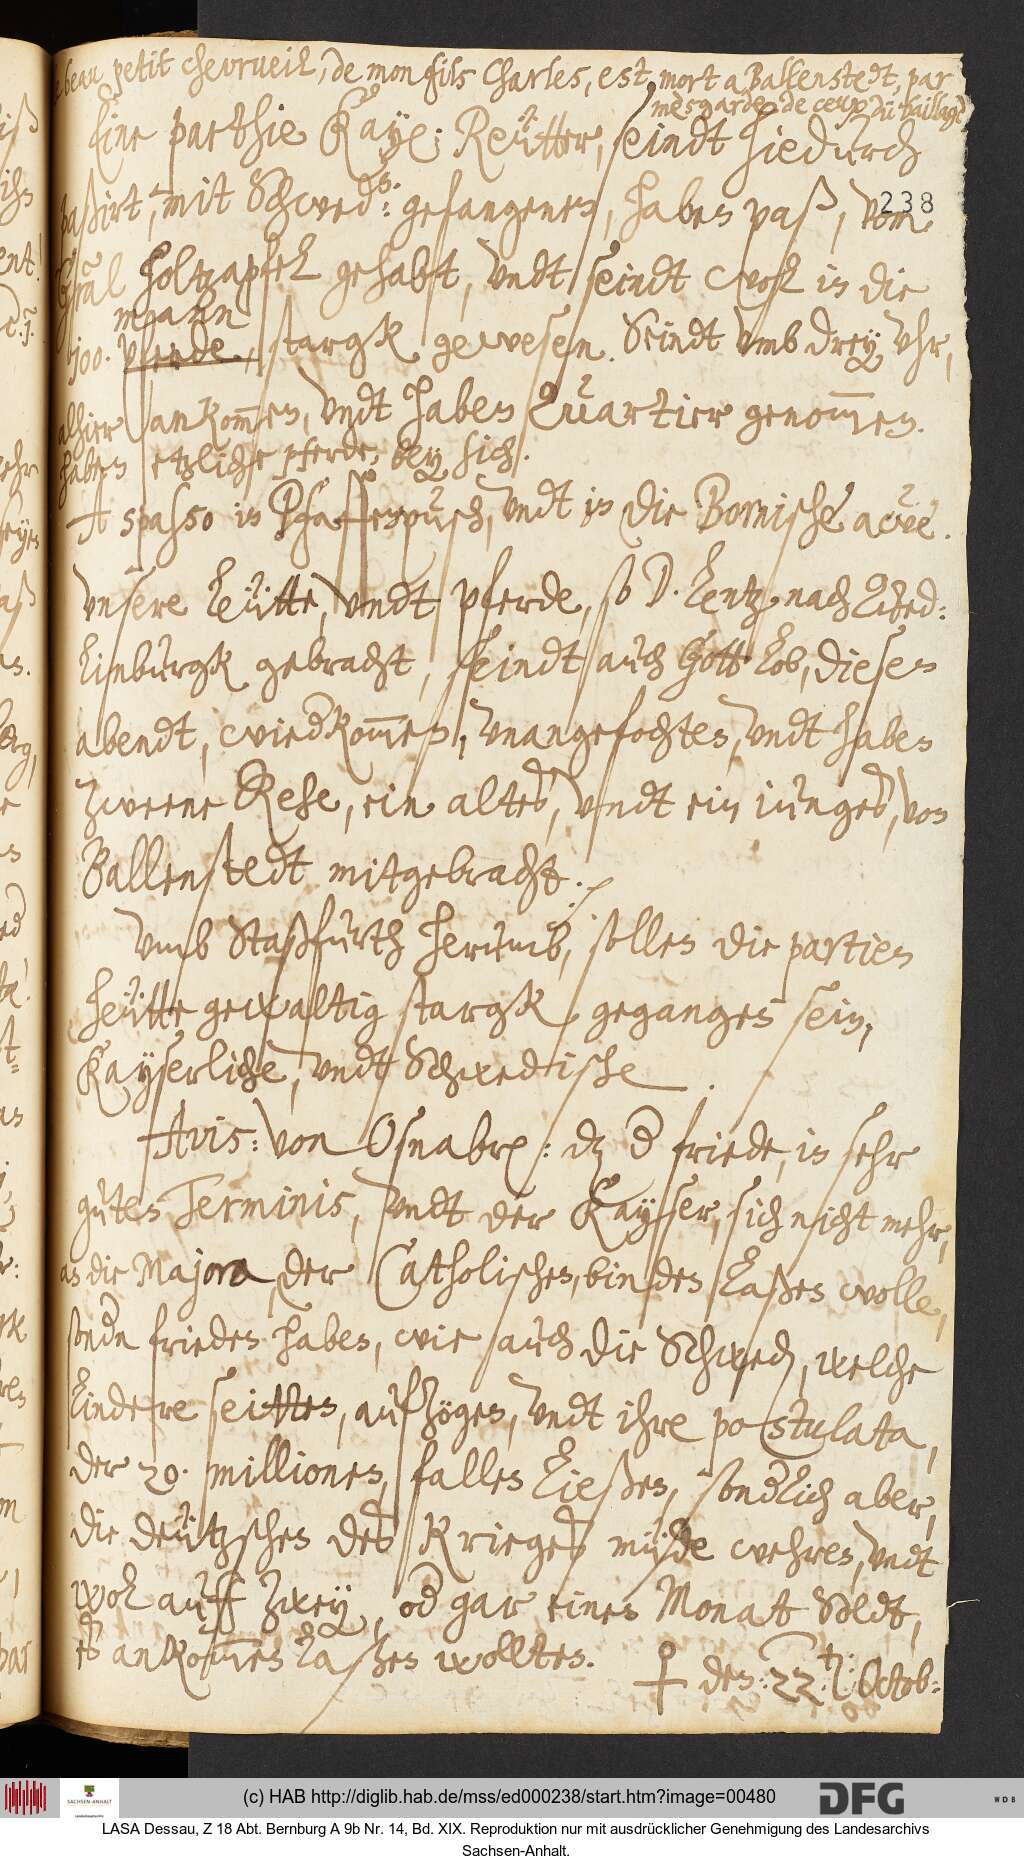 beau petit chevrueil, de mon fils Charles, est mort a Ballenstedt, par
mesgarde, de ceux du bailliage
Eine parthie Kay: Reütter, seindt hiedurch
paßirt, mit Schwed: gefangenen, haben paß, vom
238
Gral Holtzapfel gehabt, vndt seindt wol in die
mann
500. pferde, stargk gewesen. Seindt vmb drey vhr,
alhier ankom̅en, vndt haben Quartier genom̅en.
haben etzliche pferde, bey sich.
A spasso in Pfaffenpusch, vndt in die Bornische awe.
Vnsere leütte, vndt pferde, so D. Lentz nach Qued:
linburgk gebracht, seindt auch Gott lob, diesen
abendt, wiedkom̅en, vnangefochten, vndt haben
zweene Rehe, ein altes, vndt ein iunges, von
Ballenstedt mitgebracht.
Vmb Staßfurth herumb, sollen die partien
heütte gewaltig stargk gegangen sein,
Kayserliche, vndt Schwedische.
Avis: von Osnabr: dz d friede, in sehr
guten Terminis, vndt der Kayser, sich nicht mehr,
an die Majora, der Catholischen, binden laßen wolle,
sondn frieden haben, wie auch die Schwed, welche
lindere seitten, aufzögen, vndt ihre postulata,
der 20. millionen, fallen ließen, sondlich aber,
die deützschen des Krieges müde wehren, vndt
wol auff zwey, od gar einen Monat Soldt,
es ankom̅en laßen wollten.
♀ den: 22. Octob:
(c) HAB http://diglib.hab.de/mss/ed000238/start.htm?image=00480
SACHSEN-ANHALT
DFG
WDB
LASA Dessau, Z 18 Abt. Bernburg A 9b Nr. 14, Bd. XIX. Reproduktion nur mit ausdrücklicher Genehmigung des Landesarchivs
Sachsen-Anhalt.